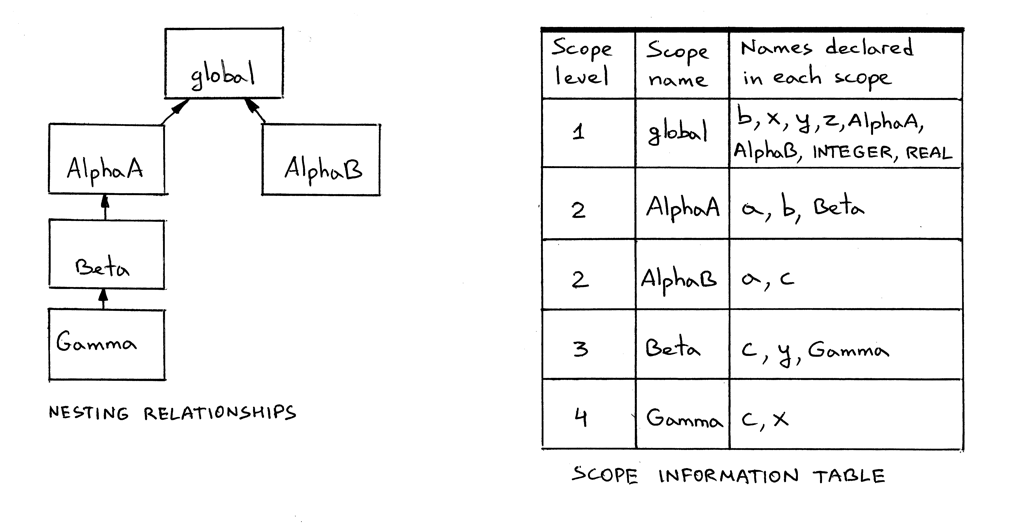 global
AlphaA
AlphaB
Beta
Gamma
NESTING RELATIONSHIPS
Scope level
Scope name
Names declared in each scope
1
global
b, x, y, z, AlphaA,
AlphaB, INTEGER, REAL
2
AlphaA
a, b, Beta
2
AlphaB
a, c
3
Beta
c, y, Gamma
4
Gamma
c, x
SCOPE INFORMATION TABLE